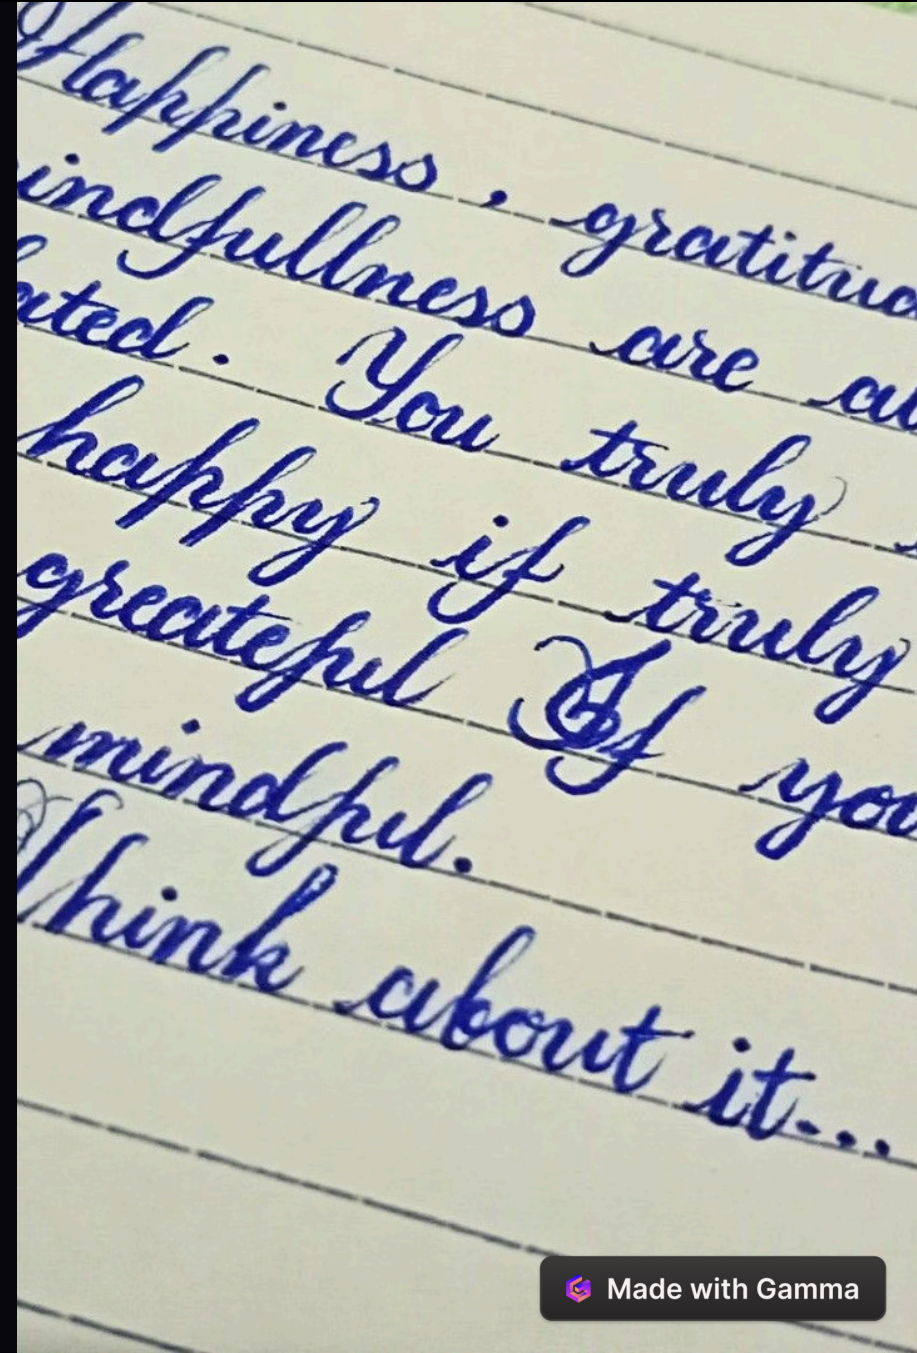 Happiness, gratitud
indfullness are al
ated. You truly
happy if truly
greateful If you
mindful.
Think about it...
Made with Gamma